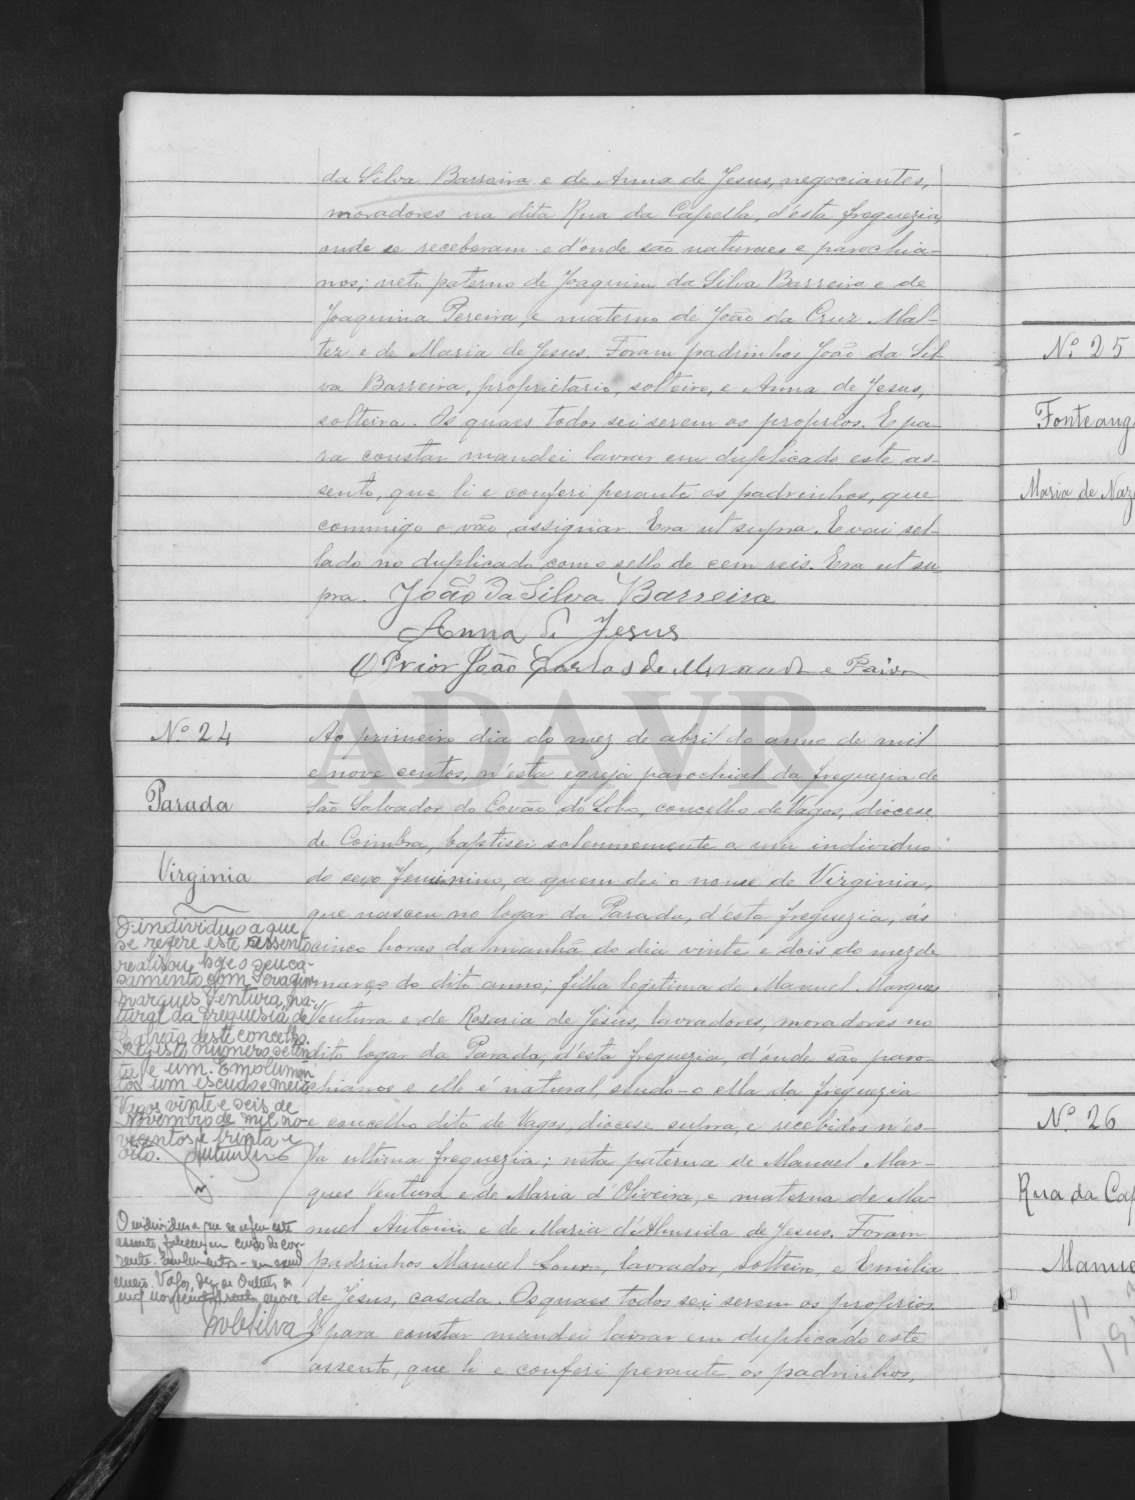 da Silva Barreira e de Anna de Jesus, negociantes,
moradores na dita Rua da Capella, d'esta freguezia,
onde se receberam e d'onde são naturaes e parochia-
nos; neto paterno de Joaquim da Silva Barreira e de
Joaquina Pereira, e materno de João da Cruz Mal-
tez e de Maria de Jesus. Foram padrinhos João da Sil-
va Barreira, proprietario, solteiro, e Anna de Jesus,
solteira. Os quaes todos sei serem os proprios. E pa-
ra constar mandei lavrar em duplicado este as-
sento, que li e conferi perante os padrinhos, que
commigo o vão assignar. Era ut supra. E vai sel-
lado no duplicado com o sello de cem reis. Era ut su-
pra. João da Silva Barreira
Anna de Jesus
O Prior João Carlos de Miranda e Paiva
ADAVR
Nº 24
Parada
Virginia
Ao primeiro dia do mez de abril do anno de mil
e nove centos, n'esta egreja parochial da freguezia de
São Salvador do Covão do Lobo, concelho de Vagos, diocese
de Coimbra, baptisei solemnemente a um individuo
do sexo feminino, a quem dei o nome de Virginia,
que nasceu no logar da Parada, d'esta freguezia, ás
cinco horas da manhã do dia vinte e dois do mez de
março do dito anno; filha legitima de Manuel Marques
Ventura e de Rosaria de Jesus, lavradores, moradores no
dito logar da Parada, d'esta freguezia, d'onde são paro-
chianos e elle é natural, sendo-o ella da freguezia
e concelho dito de Vagos, diocese supra, e recebidos n'es-
ta ultima freguezia; neta paterna de Manuel Mar-
ques Ventura e de Maria d'Oliveira, e materna de Ma-
nuel Antonio e de Maria d'Almeida de Jesus. Foram
padrinhos Manuel Louro, lavrador, solteiro, e Emilia
de Jesus, casada. Os quaes todos sei serem os proprios.
E para constar mandei lavrar em duplicado este
assento, que li e conferi perante os padrinhos,
O individuo a que
se refere este assento
realisou hoje o seu ca-
samento com
Marques Ventura, na-
tural da freguesia de
deste concelho.
Registo numero seten-
ta e um. Emolumen-
tos um escudo e meio
Vagos vinte e seis de
Novembro de mil no-
vecentos e trinta e
oito.
O individuo a que se refere este
assento, faleceu em do cor-
rente. Emolumentos - um escudo
e meio. Vagos, dez de Outubro de
mil novecentos e nove
Silva
Nº 25
Fonteang
Maria de Naz
Nº 26
Rua da Cap
Manue